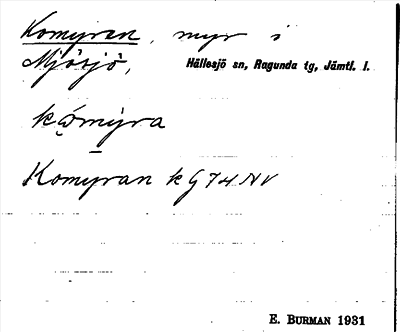 Komyran, myr i
Mjösjö, Hällesjö sn, Ragunda tg, Jämtl. l.
kǫ́mỳra
Komyran k G 74 NV
E. BURMAN 1931